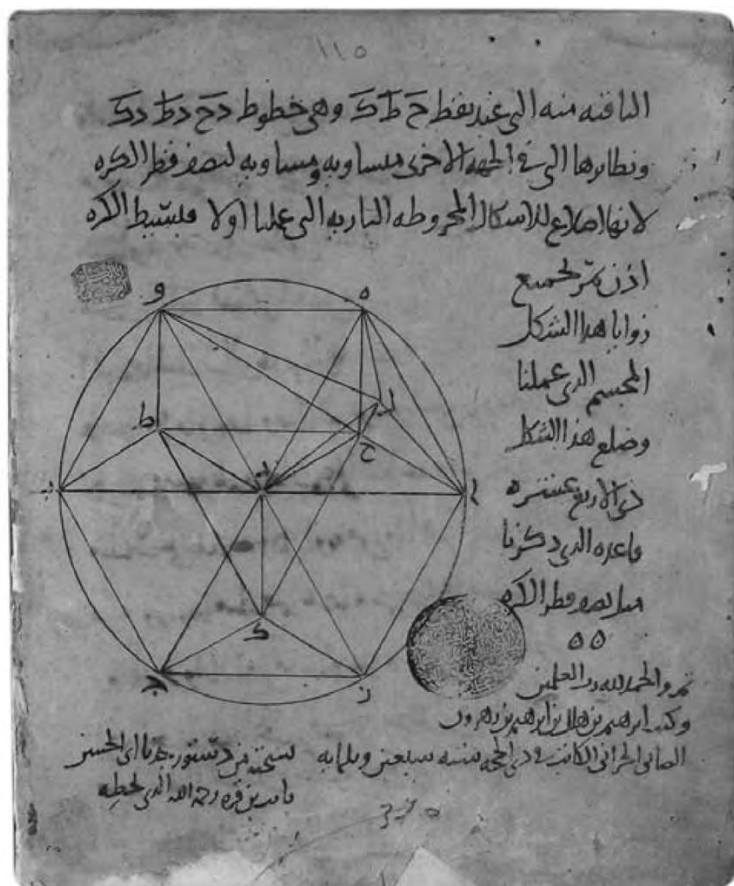 ١١٥
الباقيه منه التى عند نقط ح ط ك وهى خطوط دح دط دك
ونظايرها التى فى الجهه الاخرى متساويه ومساويه لنصف قطر الاكره
لانها اضلاع للاشكال المخروطه الناريه التى عملنا اولا فبسيط الاكره
اذن يمر بجميع
زوايا هذا الشكل
المجسم الذى عملنا
وضلع هذا الشكل
ذى الاربع عشره
قاعده الذى ذكرنا
مثل نصف قطر الاكره
ه ه
و ه
ل
ط ح
ب د ا
ك
ج ز
تم والحمد لله رب العلمين
وكتب ابرهيم بن هلال بن ابرهيم بن زهرون
الصابى الحرانى الكاتب فى ذى الحجه سنه سبعين وثلثمايه
نسخته من دستور جدنا ابى الحسن
ثابت بن قره رحمه الله الذى بخطه